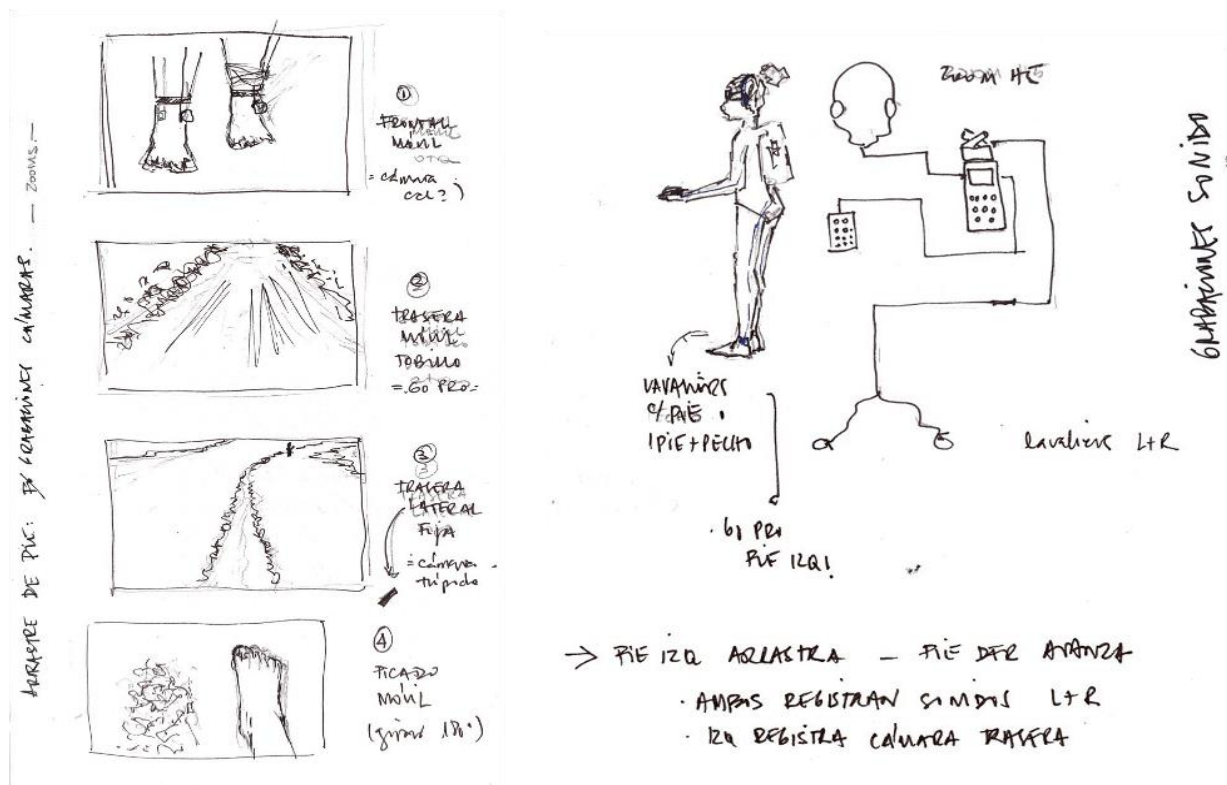 ARRASTRE DE PIE: GRABACIONES CÁMARAS. — ZOOMS. —
①
FRONTAL
MÓVIL
= cámara
②
TRASERA
MÓVIL
TOBILLO
= GO PRO =
③
TRASERA
LATERAL
FIJA
= cámara
trípode
④
PICADO
MÓVIL
(girar 180°)
ZOOM
GRABACIONES SONIDO
LAVALIERS
C/PIE
1 PIE + PECHO
lavaliers L+R
· GO PRO
PIE IZQ!
→ PIE IZQ ARRASTRA — PIE DER AVANZA
· AMBOS REGISTRAN SONIDOS L+R
· IZQ REGISTRA CÁMARA TRASERA